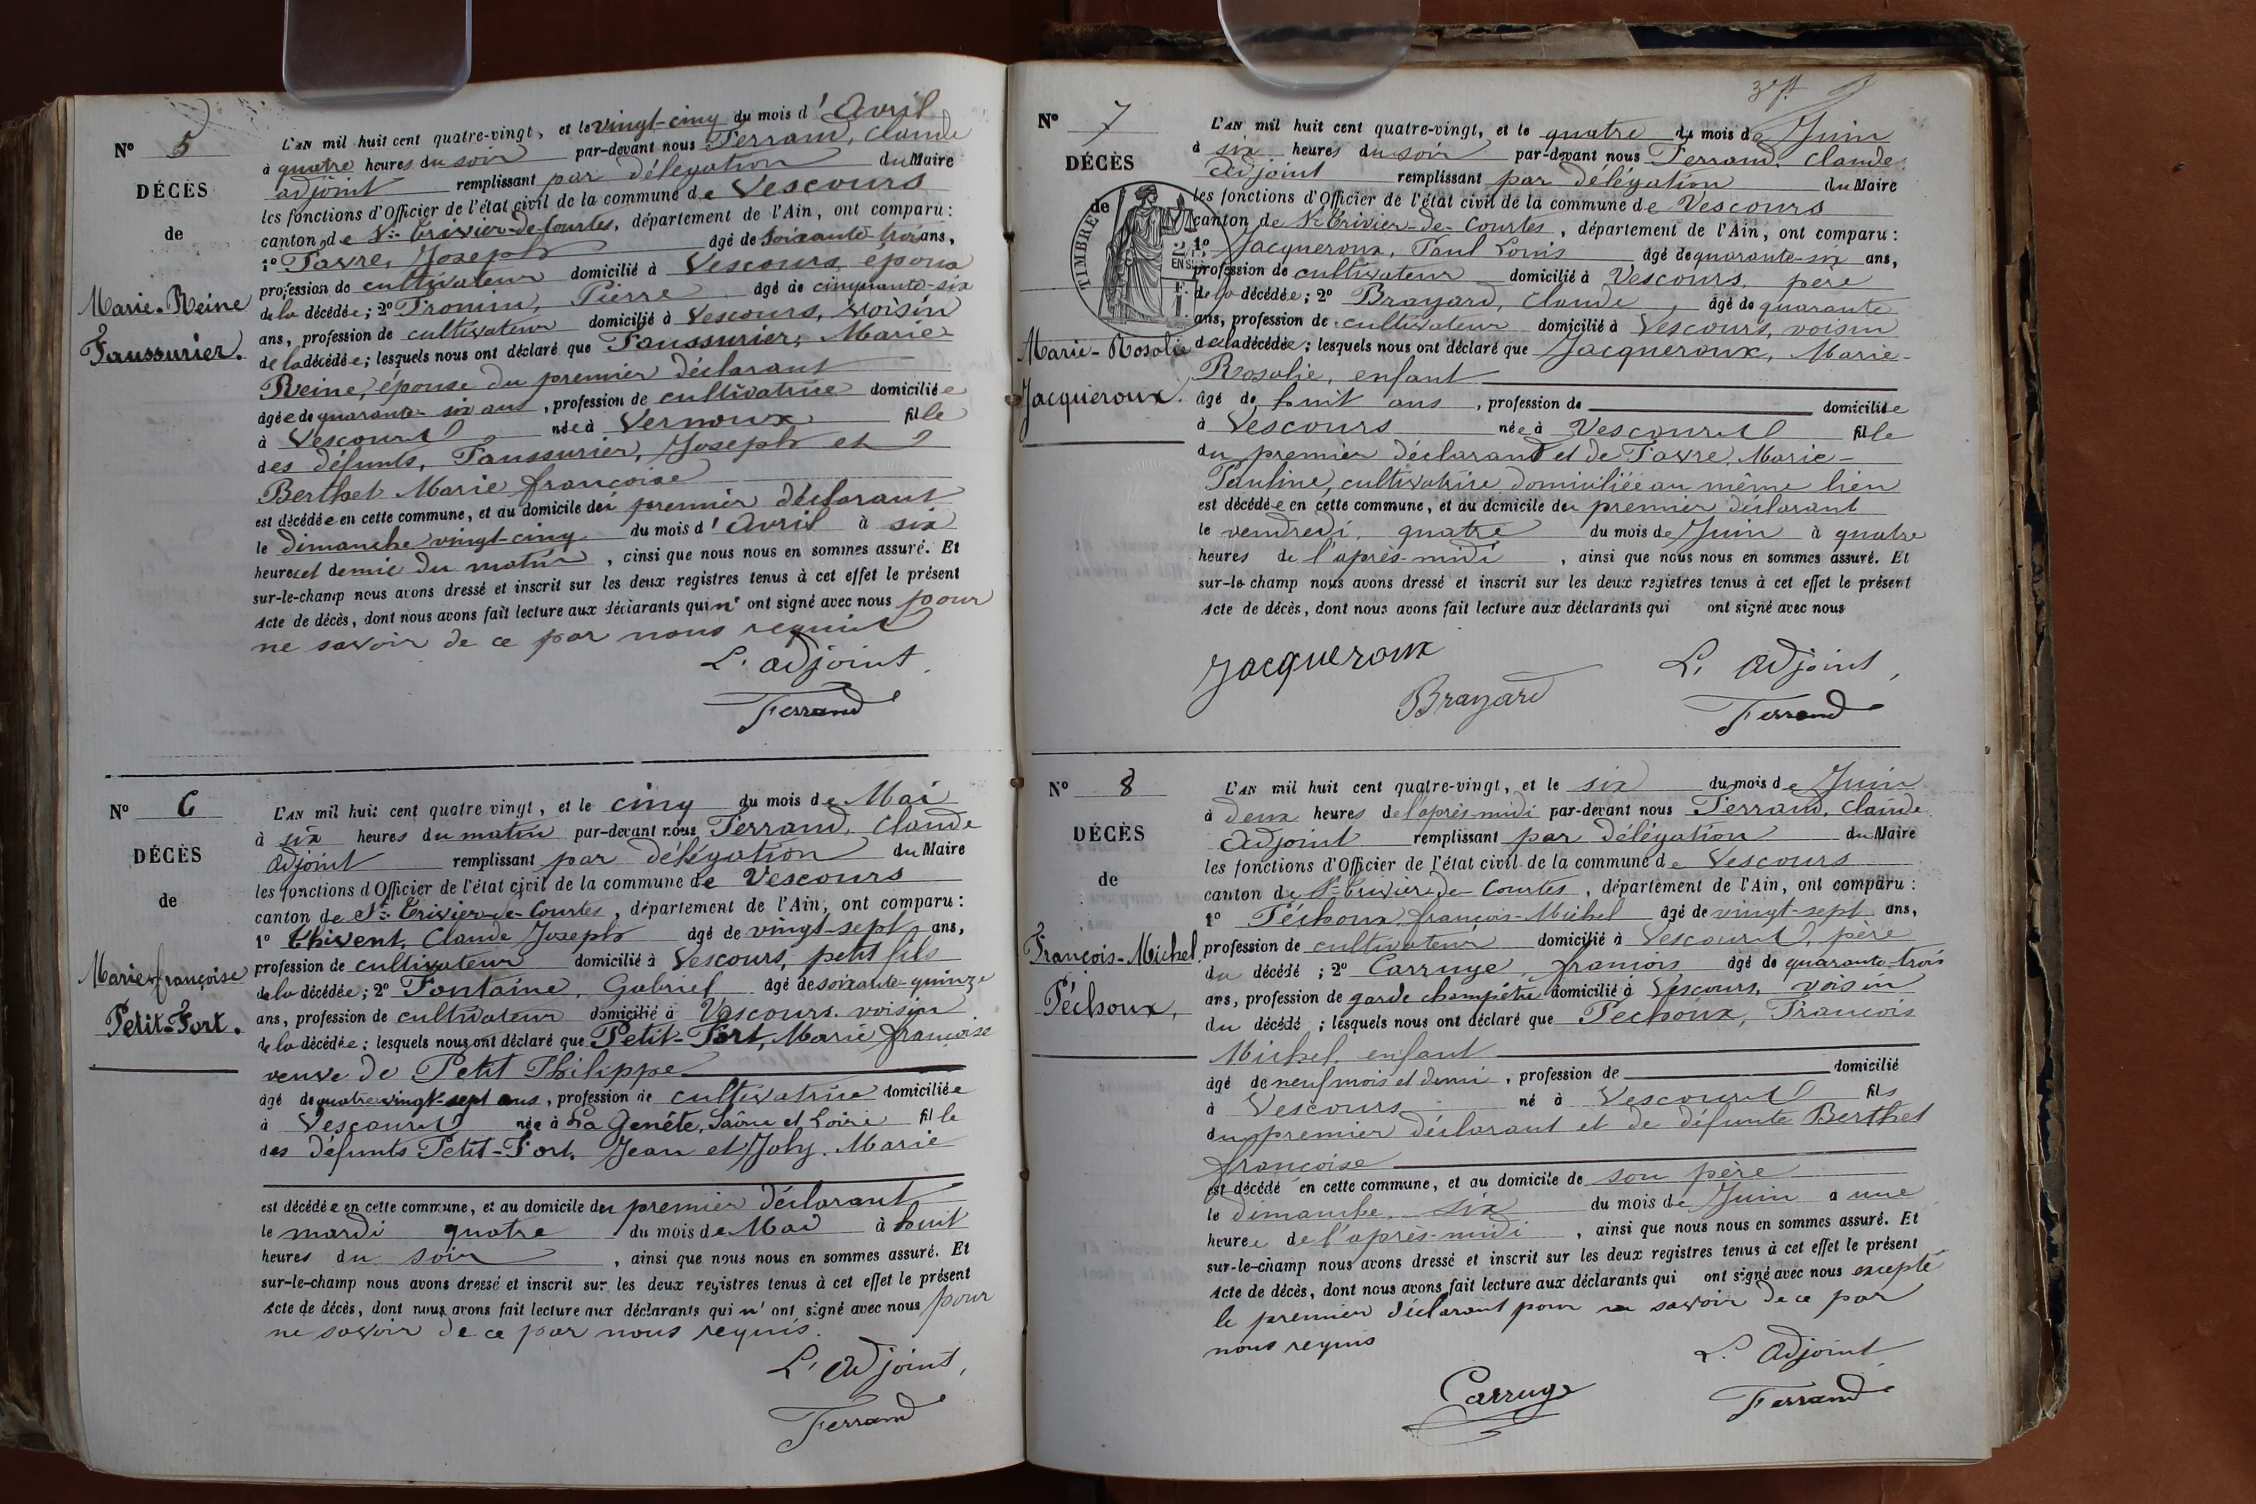 N° 5
DÉCÈS
de
Marie-Reine
Faussurier.
L'AN mil huit cent quatre-vingt, et le vingt-cinq du mois d'Avril
à quatre heures du soir par-devant nous Ferrand, Claude
adjoint remplissant par délégation du Maire
les fonctions d'Officier de l'état civil de la commune de Vescours
canton de St Trivier-de-Courtes, département de l'Ain, ont comparu :
1° Favre, Joseph âgé de soixante-trois ans,
profession de cultivateur domicilié à Vescours, époux
de la décédée ; 2° Pronun, Pierre âgé de cinquante-six
ans, profession de cultivateur domicilié à Vescours, voisin
de la décédée ; lesquels nous ont déclaré que Faussurier, Marie-
Reine, épouse du premier déclarant
âgée de quarante-six ans, profession de cultivatrice domiciliée
à Vescours née à Vernoux fille
des défunts, Faussurier, Joseph et
Berthet Marie françoise
est décédée en cette commune, et au domicile du premier déclarant
le dimanche vingt-cinq du mois d'Avril à six
heures et demie du matin, ainsi que nous nous en sommes assuré. Et
sur-le-champ nous avons dressé et inscrit sur les deux registres tenus à cet effet le présent
acte de décès, dont nous avons fait lecture aux déclarants qui n'ont signé avec nous pour
ne savoir de ce par nous requis
L'adjoint,
Ferrand
N° 6
DÉCÈS
de
Marie françoise
Petit-Fort.
L'AN mil huit cent quatre vingt, et le cinq du mois de Mai
à six heures du matin par-devant nous Ferrand, Claude
adjoint remplissant par délégation du Maire
les fonctions d'Officier de l'état civil de la commune de Vescours
canton de St Trivier-de-Courtes, département de l'Ain, ont comparu :
1° Thivent, Claude Joseph âgé de vingt-sept ans,
profession de cultivateur domicilié à Vescours, petit fils
de la décédée ; 2° Fontaine, Gabriel âgé de soixante-quinze
ans, profession de cultivateur domicilié à Vescours, voisin
de la décédée ; lesquels nous ont déclaré que Petit-Fort, Marie françoise
veuve de Petit Philippe
âgé de quatre vingt-sept ans, profession de cultivatrice domiciliée
à Vescours née à La Genête, Saône et Loire fille
des défunts Petit-Fort, Jean et Joly, Marie
est décédée en cette commune, et au domicile du premier déclarant
le mardi quatre du mois de Mai à huit
heures du soir, ainsi que nous nous en sommes assuré. Et
sur-le-champ nous avons dressé et inscrit sur les deux registres tenus à cet effet le présent
acte de décès, dont nous avons fait lecture aux déclarants qui n'ont signé avec nous pour
ne savoir de ce par nous requis.
L'adjoint,
Ferrand
N° 7
DÉCÈS
de
TIMBRE
Marie-Rosalie
Jacqueroux.
L'AN mil huit cent quatre-vingt, et le quatre du mois de Juin
à six heures du soir par-devant nous Ferrand, Claude
adjoint remplissant par délégation du Maire
les fonctions d'Officier de l'état civil de la commune de Vescours
canton de St Trivier-de-Courtes, département de l'Ain, ont comparu :
1° Jacqueroux, Paul Louis âgé de quarante-six ans,
profession de cultivateur domicilié à Vescours, père
de la décédée ; 2° Brayard, Claude, âgé de quarante
ans, profession de cultivateur domicilié à Vescours, voisin
de la décédée ; lesquels nous ont déclaré que Jacqueroux, Marie-
Rosalie, enfant
âgé de huit ans, profession de domiciliée
à Vescours née à Vescours fille
du premier déclarant et de Favre, Marie-
Pauline, cultivatrice domiciliée au même lieu
est décédée en cette commune, et au domicile du premier déclarant
le vendredi, quatre du mois de Juin à quatre
heures de l'après-midi, ainsi que nous nous en sommes assuré. Et
sur-le-champ nous avons dressé et inscrit sur les deux registres tenus à cet effet le présent
acte de décès, dont nous avons fait lecture aux déclarants qui ont signé avec nous
Jacqueroux
Brayard
L'adjoint,
Ferrand
N° 8
DÉCÈS
de
François-Michel
Péchoux,
L'AN mil huit cent quatre-vingt, et le six du mois de Juin
à deux heures de l'après-midi par-devant nous Ferrand, Claude
adjoint remplissant par délégation du Maire
les fonctions d'Officier de l'état civil de la commune de Vescours
canton de St Trivier-de-Courtes, département de l'Ain, ont comparu :
1° Péchoux, françois-Michel âgé de vingt-sept ans,
profession de cultivateur domicilié à Vescours, père
du décédé ; 2° Carruge, françois âgé de quarante-trois
ans, profession de garde champêtre domicilié à Vescours, voisin
du décédé ; lesquels nous ont déclaré que Péchoux, François
Michel, enfant
âgé de neuf mois et demi, profession de domicilié
à Vescours né à Vescours fils
du premier déclarant et de défunte Berthet
françoise
est décédé en cette commune, et au domicile de son père
le dimanche, six du mois de Juin à une
heure de l'après-midi, ainsi que nous nous en sommes assuré. Et
sur-le-champ nous avons dressé et inscrit sur les deux registres tenus à cet effet le présent
acte de décès, dont nous avons fait lecture aux déclarants qui ont signé avec nous excepté
le premier déclarant pour ne savoir de ce par
nous requis
L'adjoint
Carruge
Ferrand